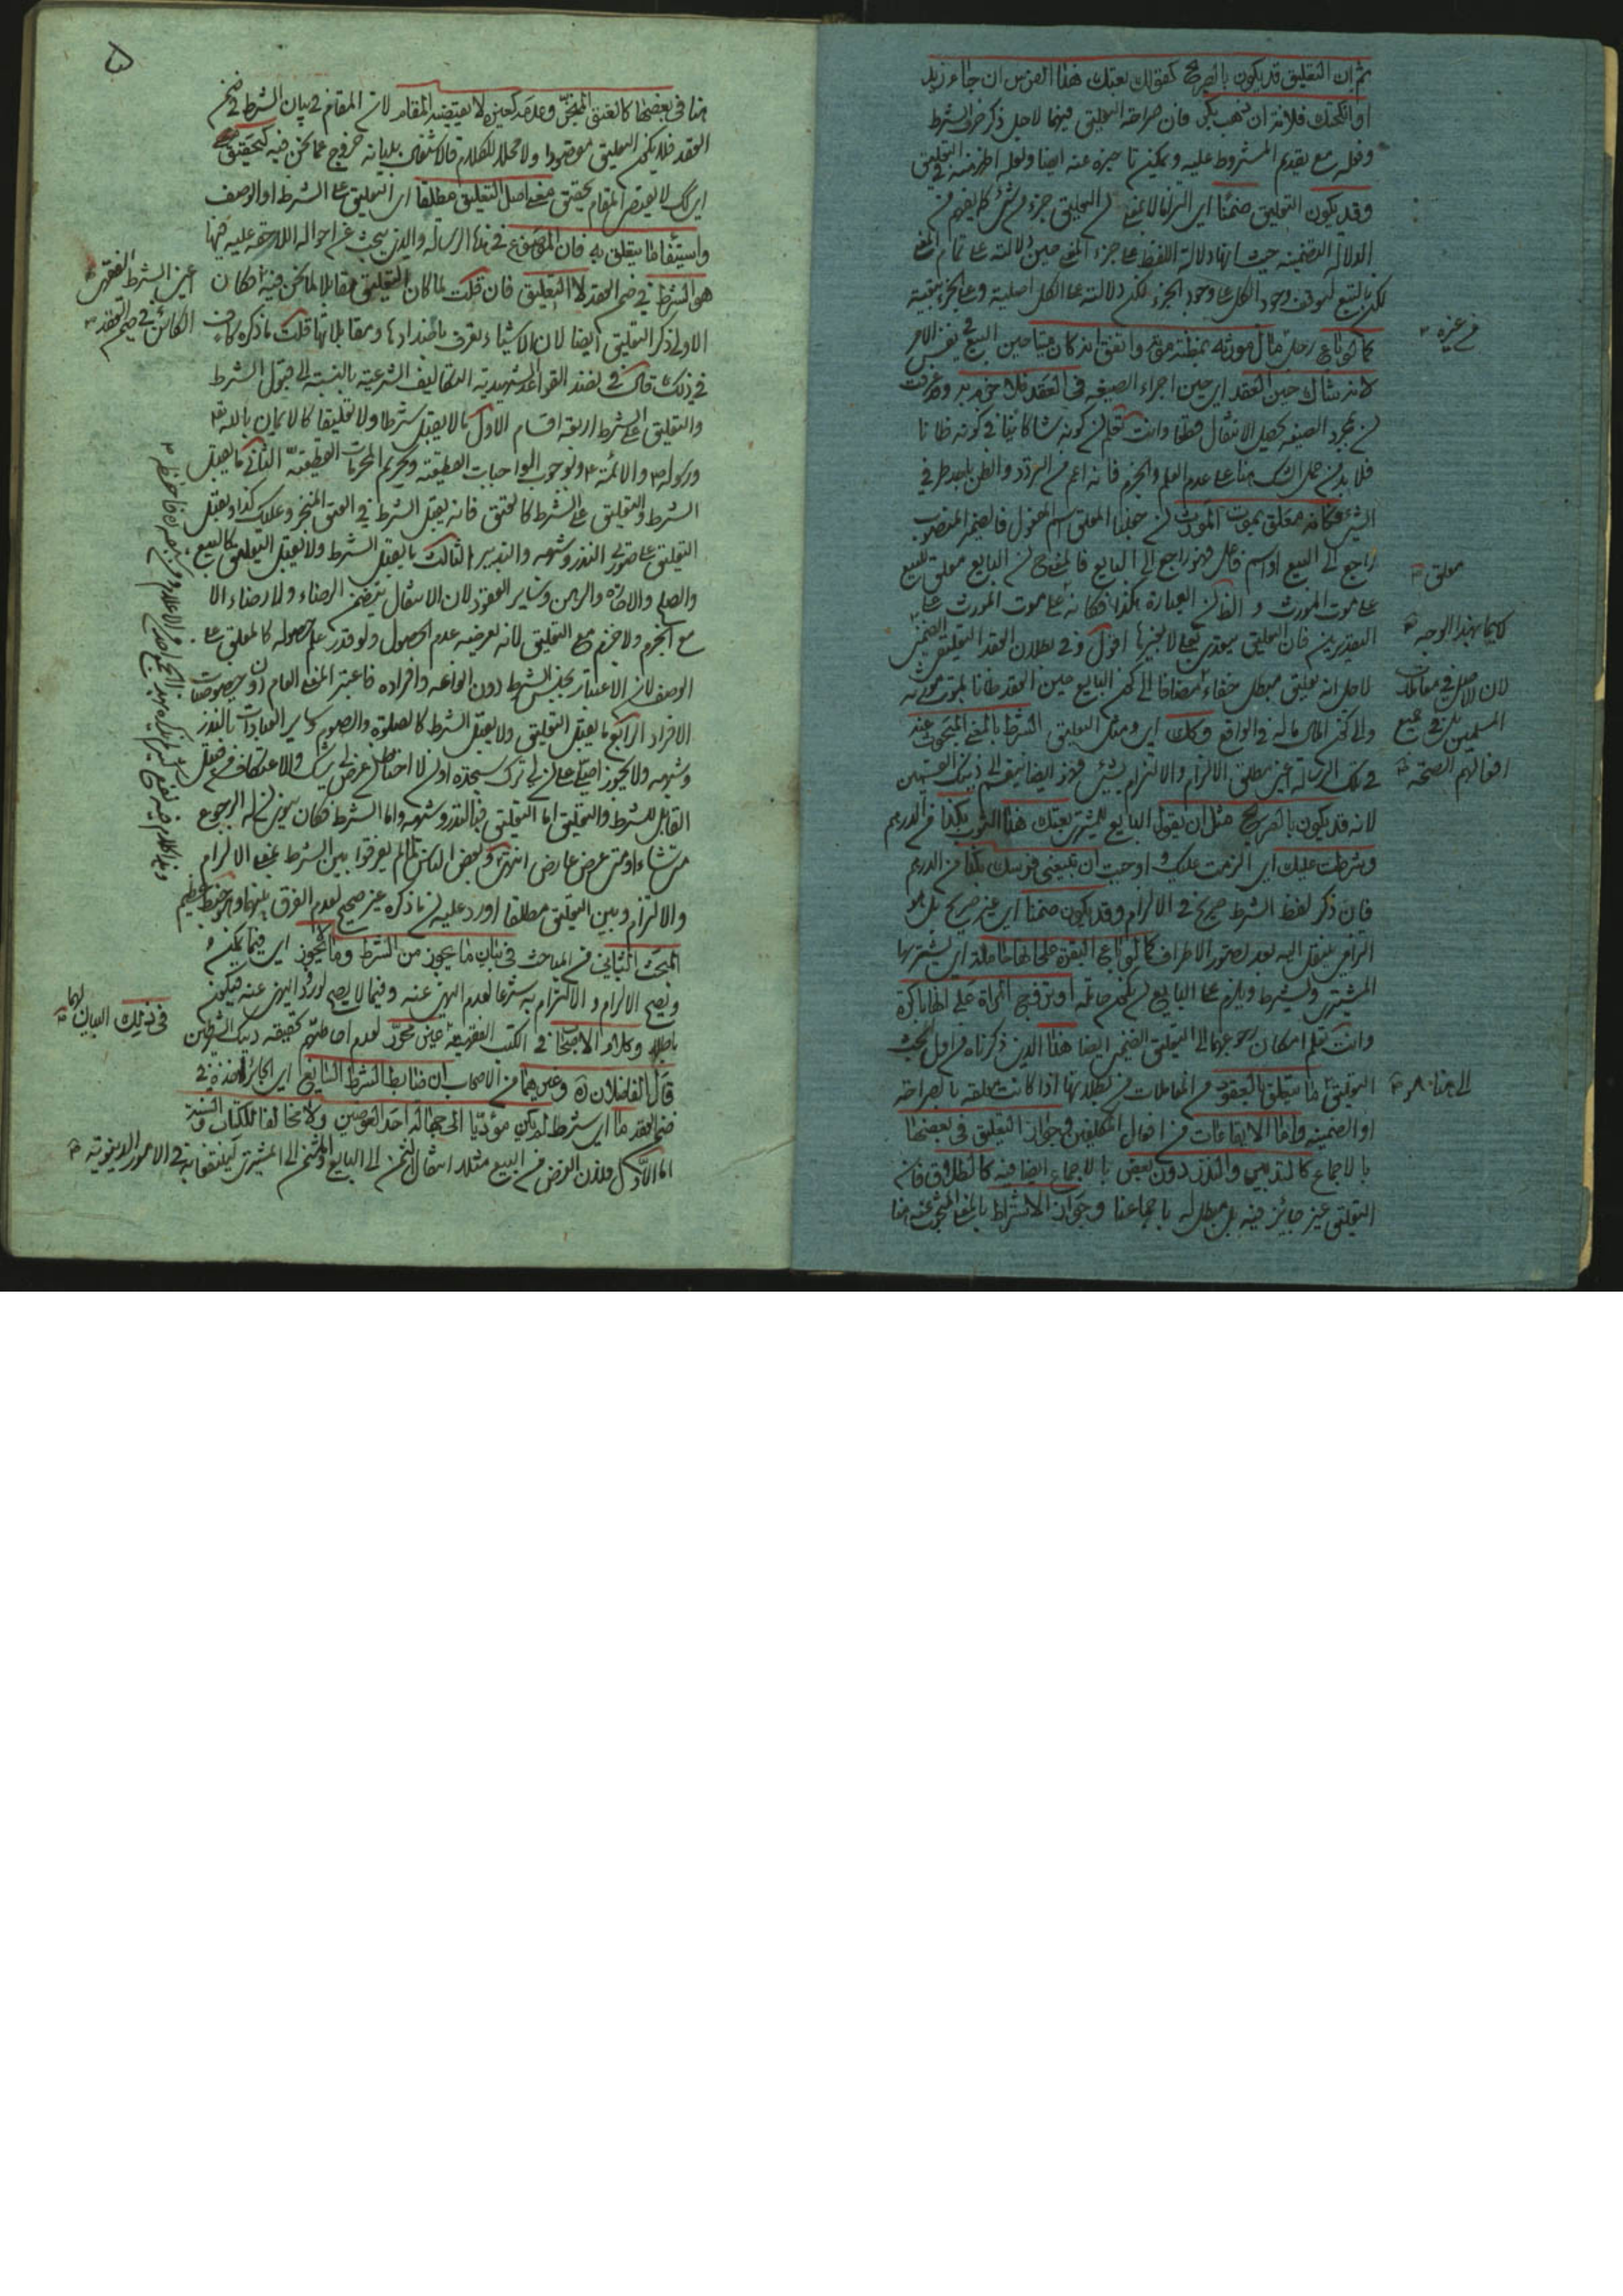 ثم ان التعليق قد يكون بالصريح كقولك بعتك هذا الفرس ان جاء زيد
او انكحتك فلانة ان ذهب بكر فان صراحة التعليق فيهما لاجل ذكر حرف الشرط
وفعله مع تقديم المشروط عليه ويمكن تاخيره عنه ايضا ولعله اظهر منه في التعليق
وقد يكون التعليق ضمنا اي التزاما لا بمعنى ان التعليق جزء من شئ كما يفهم من
الدلالة التضمنية حيث انها دلالة اللفظ على جزء المعنى حين دلالته على تمام المعنى
لكن بالتبع لتوقف وجود الكل على وجود الجزء لكن دلالته على الكل اصلية وعلى الجزء تبعية
كما لو باع رجل مال مورثه بمظنة موته واتفق انه كان ميتا حين البيع في نفس الامر
لانه شاك حين العقد اي حين اجراء الصيغة في العقد فلا جزم به وعرفت
ان بمجرد الصيغة يحصل الانتقال قطعا وانت تعلم ان كونه شاكا ينافي كونه ظانا
فلا بد من حمل الشك هنا على عدم العلم والجزم فانه اعم من التردد والظن باحد طرفي
الشئ فكانه معلق بموت المورث ان جعلنا المعلق اسم المفعول فالضمير المنصوب
راجع الى البيع او اسم فاعل فهو راجع الى البايع فالمعنى ان البايع معلق للبيع
على موت المورث والظ ان العبارة هكذا فكانه على موت المورث على
التقديرين فان التعليق يتعدى بعلى لا بغيرها اقول وفي بطلان العقد التعليق الضمني
لاجل انه تعليق مبطل خفاء مضافا الى كون البايع حين العقد ظانا بموت مورثه
والى كون المال ماله في الواقع وكك اي ومثل التعليق الشرط بالمعنى المبحوث عنه
في تلك الرسالة اعني مطلق الالزام والالتزام بشئ فانه ايضا ينقسم الى ذينك القسمين
لانه قد يكون بالصريح مثل ان يقول البايع للمشتري بعتك هذا الثوب بكذا من الدرهم
وشرطت عليك اي الزمت عليك واوجبت ان تبيعني فرسك بكذا من الدرهم
فان ذكر لفظ الشرط صريح في الالزام وقد يكون ضمنا اي غير صريح بل هو
الزام ينتقل اليه بعد تصور الاطراف كما لو باع البقرة على انها حاملة اي يشتريها
المشتري ويشرط ويلزم على البايع ان يكون حاملة او تزوج المراة على انها باكرة
وانت تعلم امكان رجوعهما الى التعليق الضمني ايضا هذا الذي ذكرناه من اول البحث
التعليق ما يتعلق بالعقود من المعاملات من بطلانها اذا كانت معلقة بالصراحة
او الضمنية واما الايقاعات من افعال المكلفين فجواز التعليق في بعضها
بالاجماع كالتدبير والنذر دون بعض بالاجماع ايضا فيه كالطلاق فانه
التعليق غير جائز فيه بل مبطل له باجماعنا وجواز الاشتراط بالمعنى المبحوث عنه هنا
من غيره
معلق
كليهما بهذا الوجه
لان الاصل في معاملات
المسلمين بل في جميع
افعالهم الصحة
الى هنا
٥
هنا في بعضها كالعتق المنجز وعدمه كغيره لا يقتضيه المقام لان المقام في بيان الشرط في ضمن
العقد فلا يكون التعليق مقصودا ولا محلا للكلام فالاشتغال ببيانه خروج عما نحن فيه كتحقيق
اي كك لا يقتضي المقام تحقيق معنى اصل التعليق مطلقا اي التعليق على الشرط او الوصف
واستيفاء ما يتعلق به فان الموضوع في هذه الرسالة والذي يبحث عن احواله اللاحقة عليه فيها
هو الشرط في ضمن العقد لا التعليق فان قلت لما كان التعليق مقابلا لما نحن فيه فكان
الاولى ذكر التعليق ايضا لان الاشياء تعرف باضدادها ومقابلاتها قلت ما ذكره كاف
في ذلك قال في نضد القواعد الشهيدية التكاليف الشرعية بالنسبة الى قبول الشرط
والتعليق على الشرط اربعة اقسام الاول ما لا يقبل شرطا ولا تعليقا كالايمان بالله
ورسوله والائمة وبوجوب الواجبات القطعية وتحريم المحرمات القطعية الثاني ما يقبل
الشرط والتعليق على الشرط كالعتق فانه يقبل الشرط في العتق المنجز وعليك كذا ويقبل
التعليق على صورتي النذر وشبهه والتدبير الثالث ما يقبل الشرط ولا يقبل التعليق كالبيع
والصلح والاجارة والرهن وساير العقود لان الانتقال بتضمن الرضاء ولا رضاء الا
مع الجزم ولا جزم مع التعليق لانه بعرضية عدم الحصول ولو قدر علم حصوله كالمعلق على
الوصف لان الاعتبار بجنس الشرط دون انواعه وافراده فاعتبر المعنى العام دون خصوصيات
الافراد الرابع ما يقبل التعليق ولا يقبل الشرط كالصلوة والصوم وساير العبادات بالنذر
وشبهه ولا يجوز اصلي على ان لي ترك سجدة او ان لا احتاط ان عرض لي شك والاعتكاف من قبيل
القابل للشرط والتعليق اما التعليق فبالنذر وشبهه واما الشرط فكان ينوي ان له الرجوع
متى شاء او متى عرض عارض انتهى وبعض الناس لما لم يفرقوا بين الشرط بمعنى الالزام
والالتزام وبين التعليق مطلقا اورد عليه ان ما ذكره غير صحيح لعدم الفرق بينهما وهو خبط عظيم
المبحث الثاني من المباحث في بيان ما يجوز من الشرط وما لا يجوز اي فيما يمكن
ويصح الالزام والالتزام به شرعا لعدم النهي عنه وفيما لا يصح لورود النهي عنه فيكون
باطلا وكلام الاصحاب في الكتب الفقهية غير محرر لعدم احاطتهم كحقيقة ذينك الشرطين
قال الفاضلان وغيرهما من الاصحاب ان ضابط الشرط الشايع اي الجائز اخذه في
ضمن العقد ما اي شرط لم يكن مؤديا الى جهالة احد العوضين ولا مخالفا للكتاب والسنة
اما الاول فلان الغرض من البيع مثلا انتقال الثمن الى البايع والمثمن الى المشتري لينتفعا به في الامور الدنيوية
اعني الشرط الفقهي
الكائن في ضمن العقد
في ذلك البيان لهما